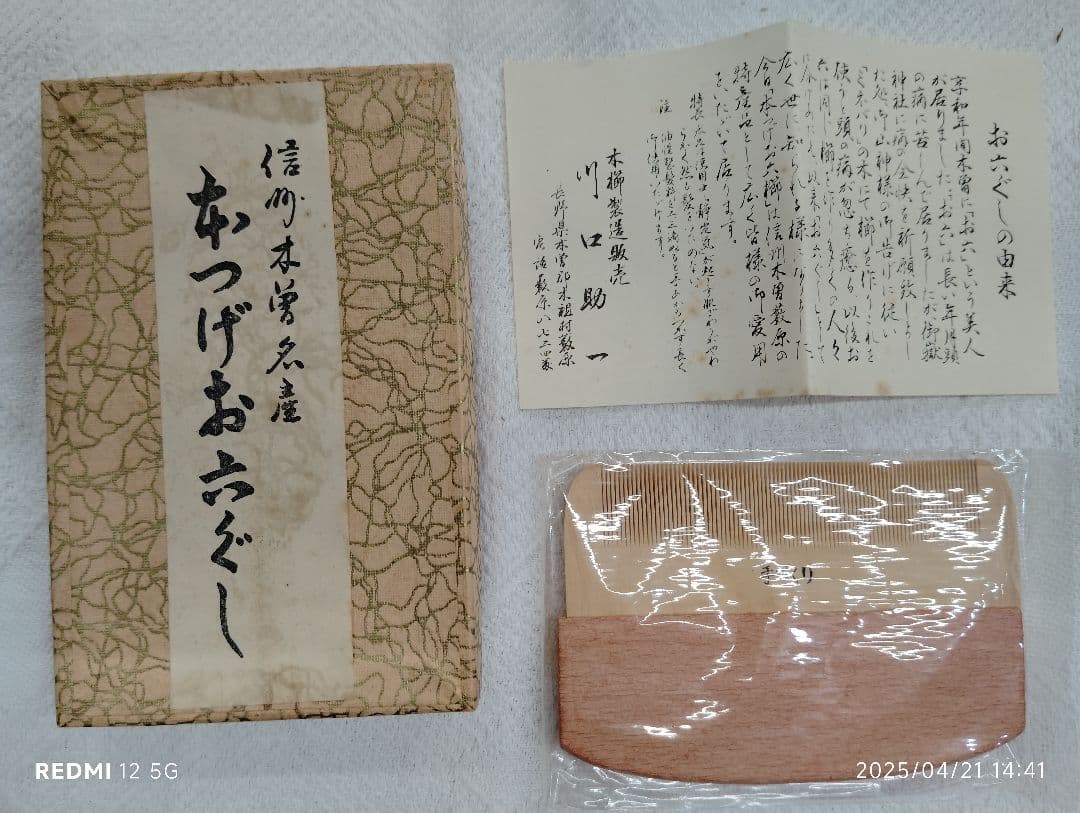 信州木曽名産
本つげお六ぐし
お六ぐしの由来
享和年間木曽に「お六」という美人
が居りました「お六」は長い年月頭
の病に苦しんで居りましたが御嶽
神社に病の全快を祈願致しまし
た処、御山神様の御告げに従い
「ミネバリ」の木にて櫛を作りこれを
使うと頭の病が忽ち癒る 以後お
六は同じ櫛を作り多くの人々に
以来「お六ぐし」として
広く世に知られる様になりました
今日「本つげお六櫛」は信州木曽薮原の
特産品として広く皆様の御愛用
をいただいて居ります。
注
木櫛製造販売
川口助一
長野県木曽郡木祖村薮原
電話薮原
手作り
REDMI 12 5G
2025/04/21 14:41